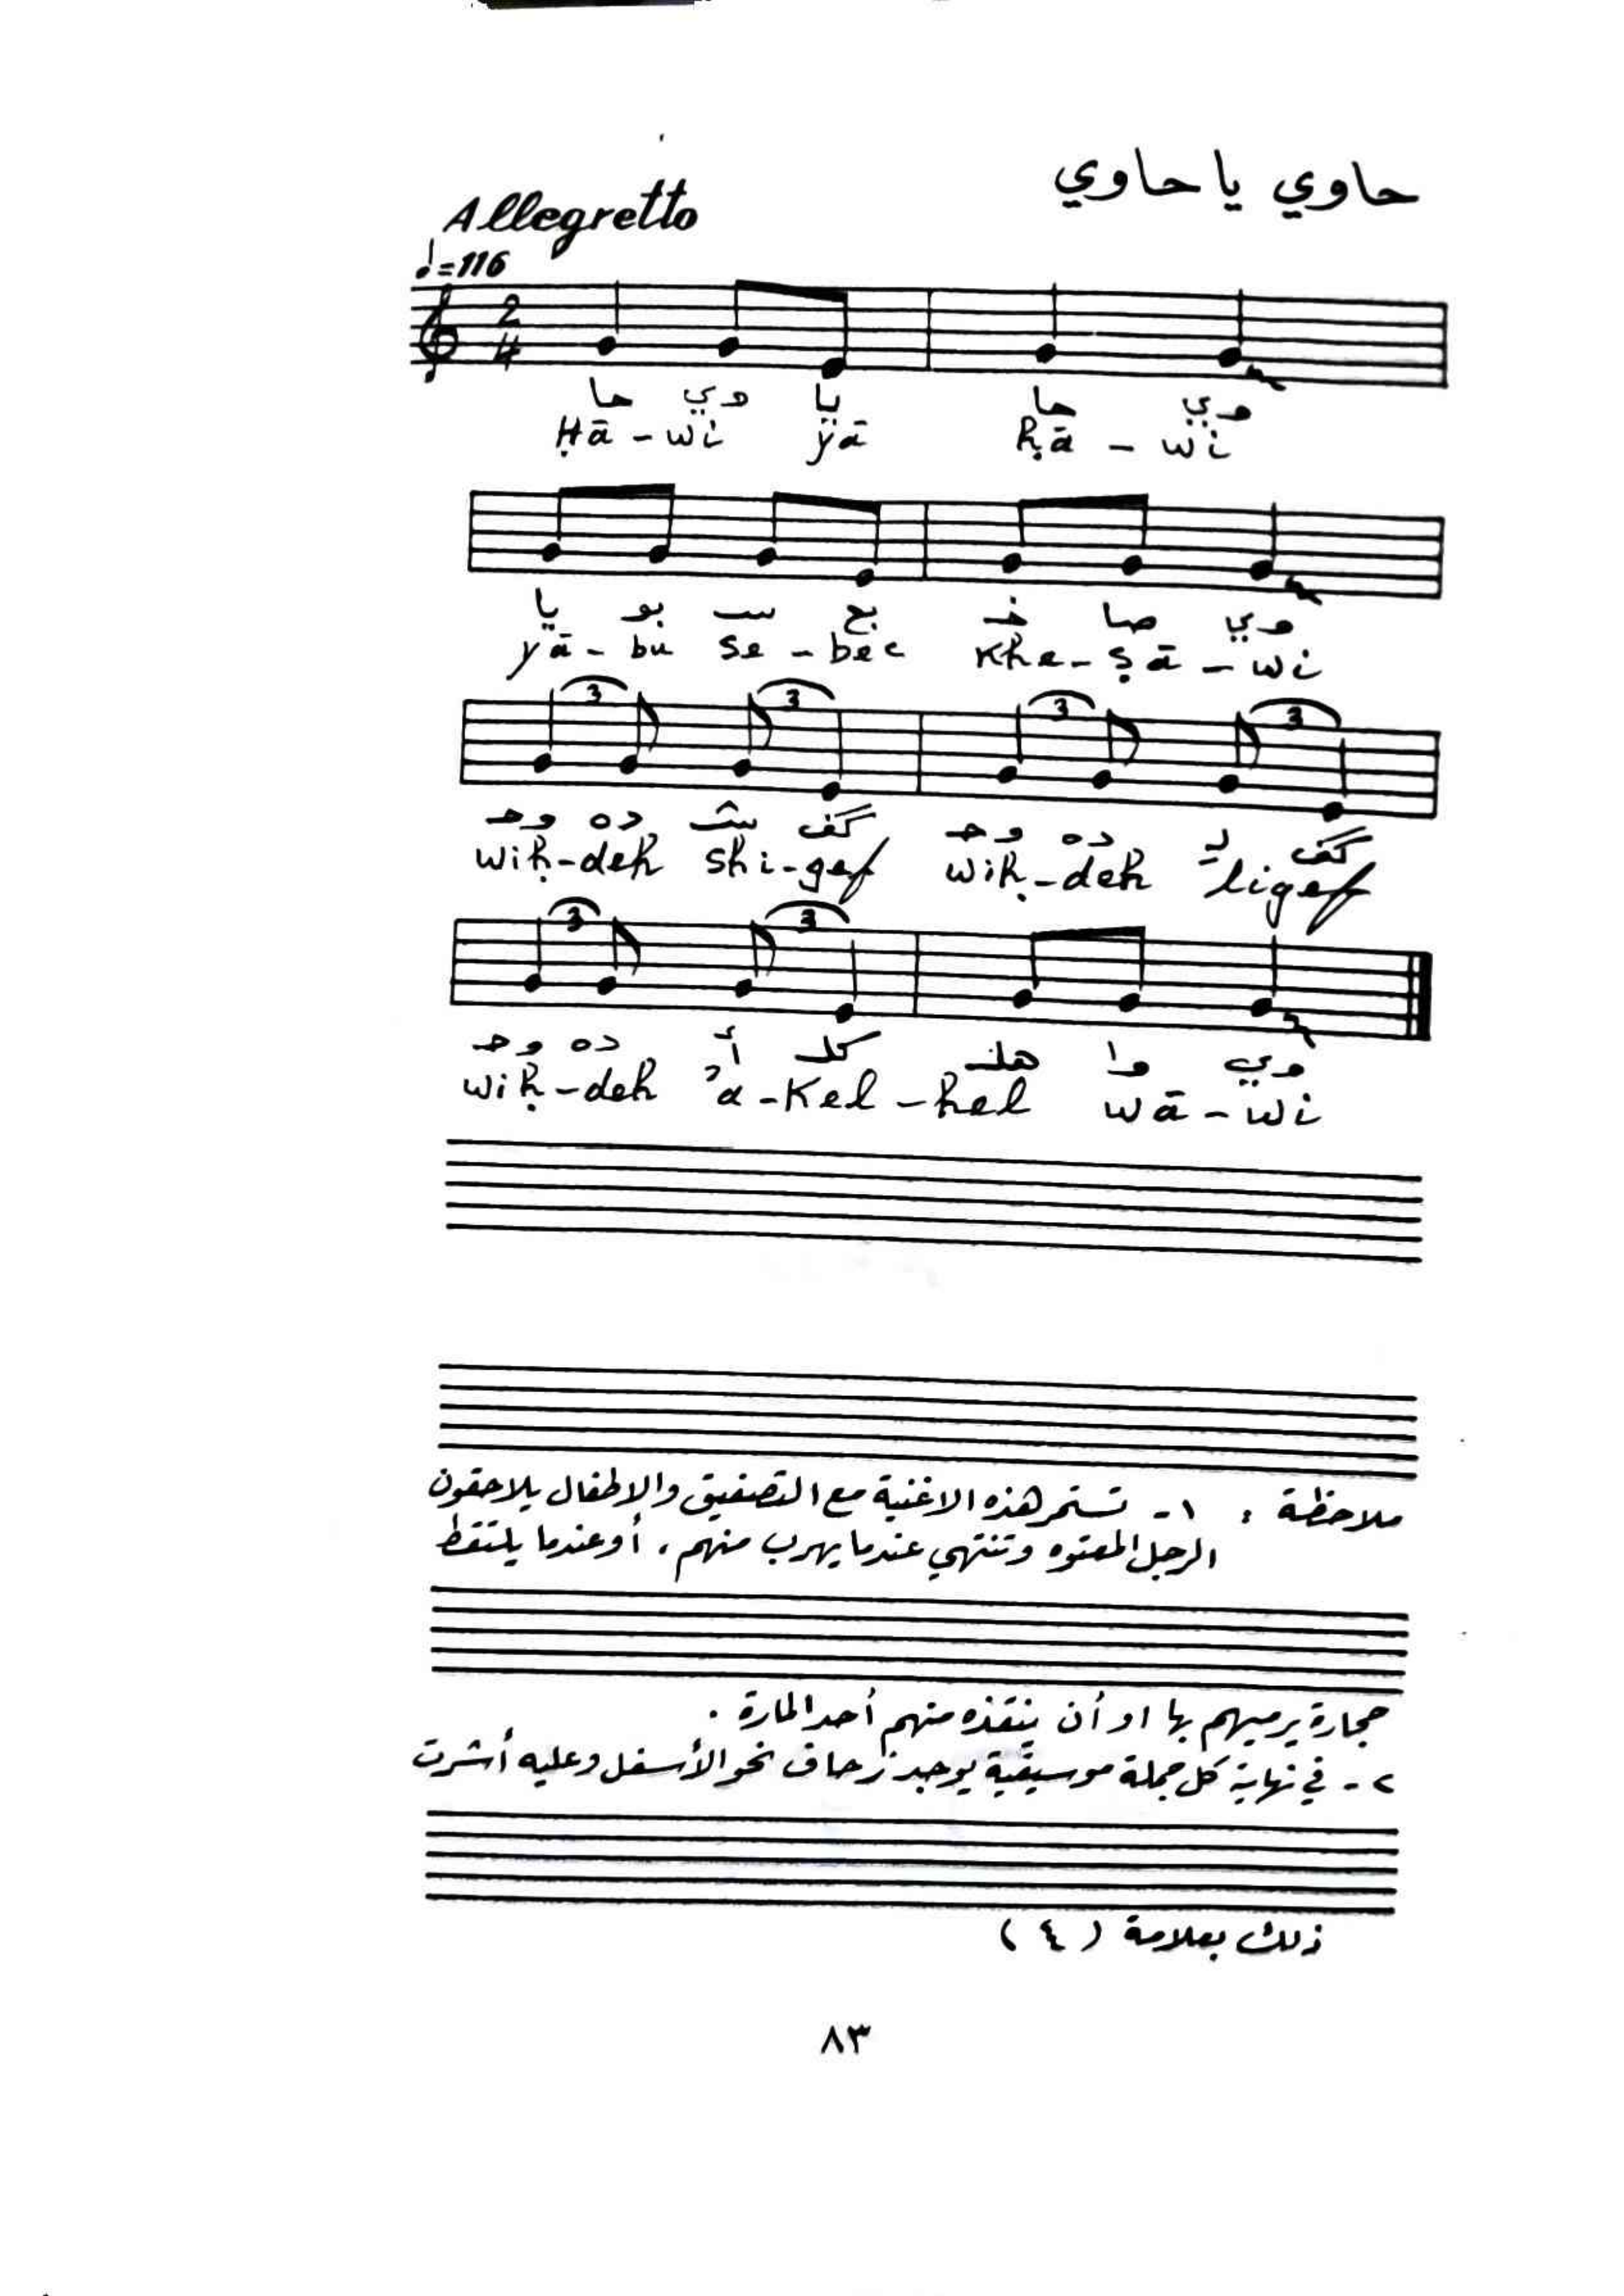 حاوي يا حاوي
Allegretto
♩=116
2
4
حا وي يا حا وي
Ḥā - wi yā ḥā - wi
يا بو سـ بع خـ صا وي
yā - bu se - bec Khe - ṣā - wi
3 3 3 3
وحـ ده شـ گف وحـ ده لـ گف
wiḥ - deh shi - gef wiḥ - deh ligef
3 3
وحـ ده أ كل هلـ وا وي
wiḥ - deh 'a - Kel - hel wā - wi
ملاحظة : ١ - تستمر هذه الاغنية مع التصفيق والاطفال يلاحقون
الرجل المعتوه وتنتهي عندما يهرب منهم ، أو عندما يلتقط
حجارة يرميهم بها او أن ينقذه منهم أحد المارة .
٢ - في نهاية كل جملة موسيقية يوجد زحاف نحو الأسفل وعليه أشرت
ذلك بعلامة ( )
٨٣